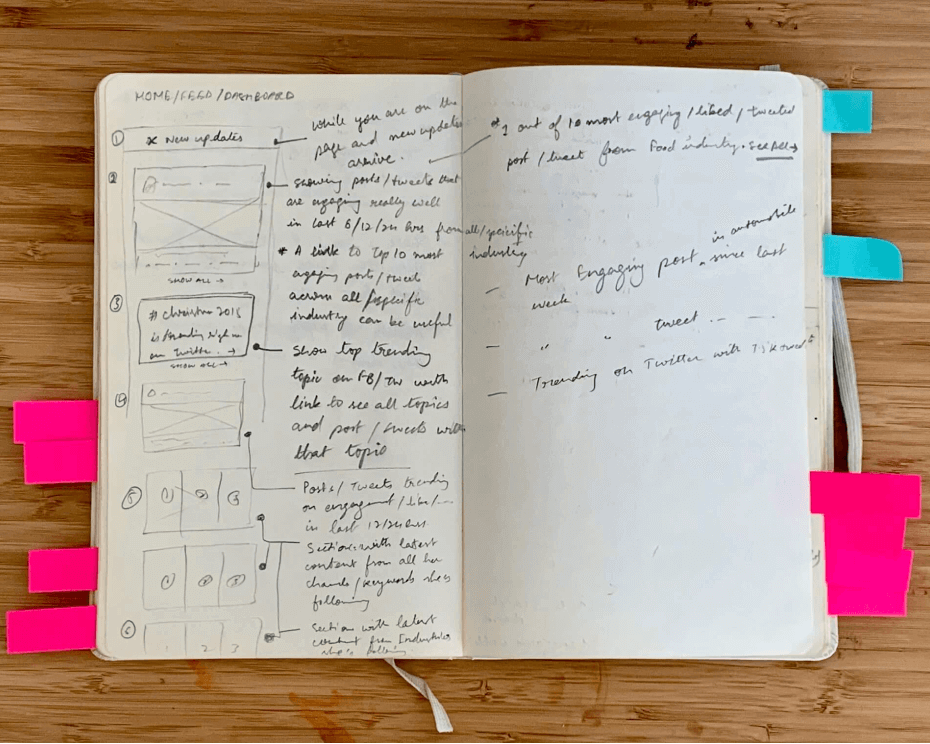 HOME/FEED/DASHBOARD
1
x New updates
while you are on the
page and new updates
arrive.
2
SHOW ALL →
showing posts/tweets that
are engaging really well
in last 6/12/24 hrs from all/specific
industry
* A link to Top 10 most
engaging posts/tweets
across all/specific
industry can be useful
3
# Christmas 2018
is trending right now
on Twitter. →
SHOW ALL →
Show top trending
topic on FB/TW with
link to see all topics
and post/tweets with
that topic
4
Posts/Tweets trending
on engagement/like/---
in last 12/24 hrs
5
1 2 3
1 2 3
Sections with latest
content from all her
channels/keywords she is
following
6
1 2 3
Section with latest
content from Industries
she's following
* 1 out of 10 most engaging/liked/tweeted
post/tweet from Food industry. See All →
— Most Engaging post in automobile since last
week
— " " tweet
— Trending on Twitter with